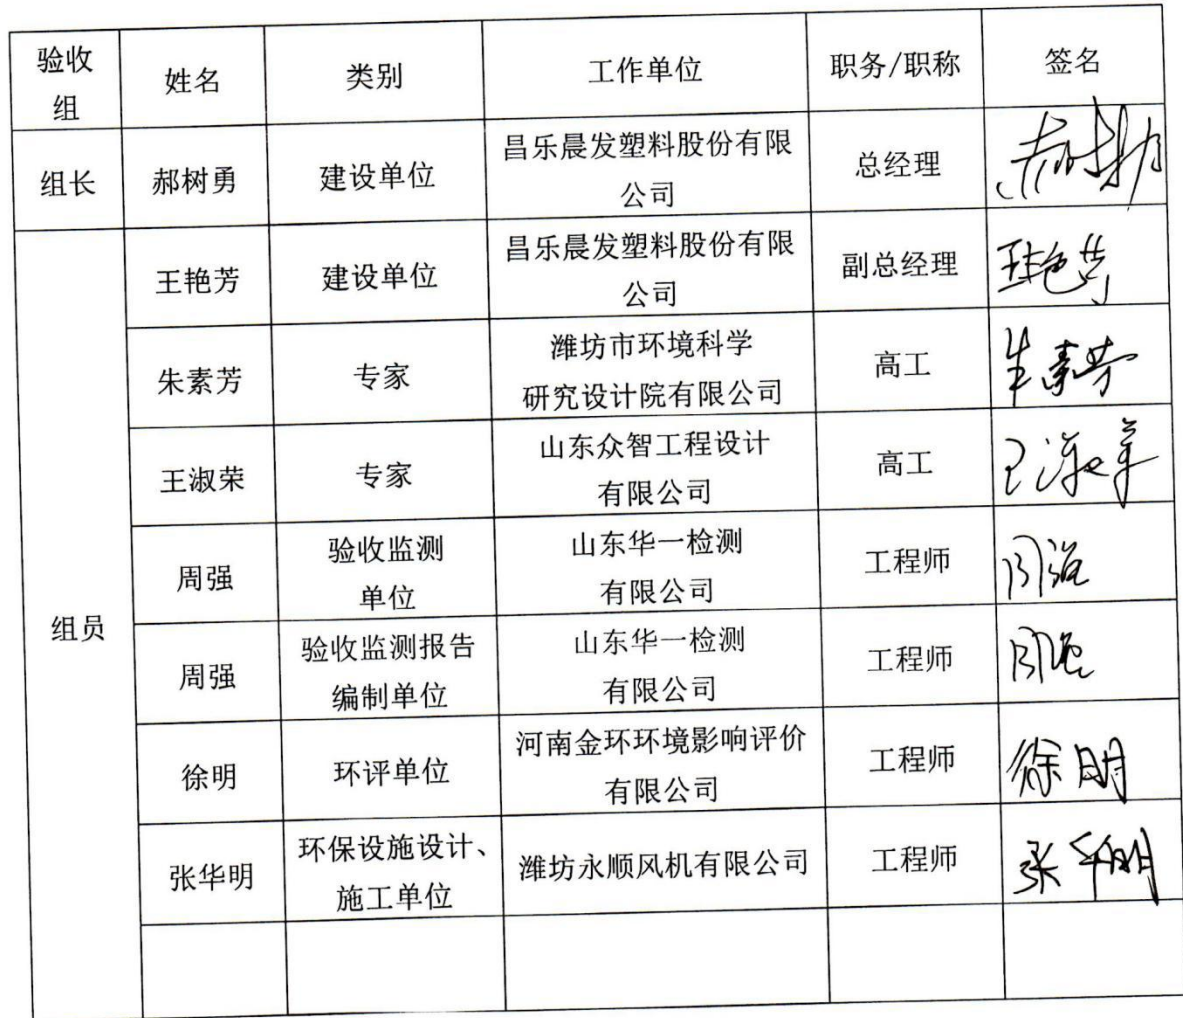 验收
组
姓名
类别
工作单位
职务/职称
签名
组长
郝树勇
建设单位
昌乐晨发塑料股份有限
公司
总经理
郝树勇
组员
王艳芳
建设单位
昌乐晨发塑料股份有限
公司
副总经理
王艳芳
朱素芳
专家
潍坊市环境科学
研究设计院有限公司
高工
朱素芳
王淑荣
专家
山东众智工程设计
有限公司
高工
王淑荣
周强
验收监测
单位
山东华一检测
有限公司
工程师
周强
周强
验收监测报告
编制单位
山东华一检测
有限公司
工程师
周强
徐明
环评单位
河南金环环境影响评价
有限公司
工程师
徐明
张华明
环保设施设计、
施工单位
潍坊永顺风机有限公司
工程师
张华明